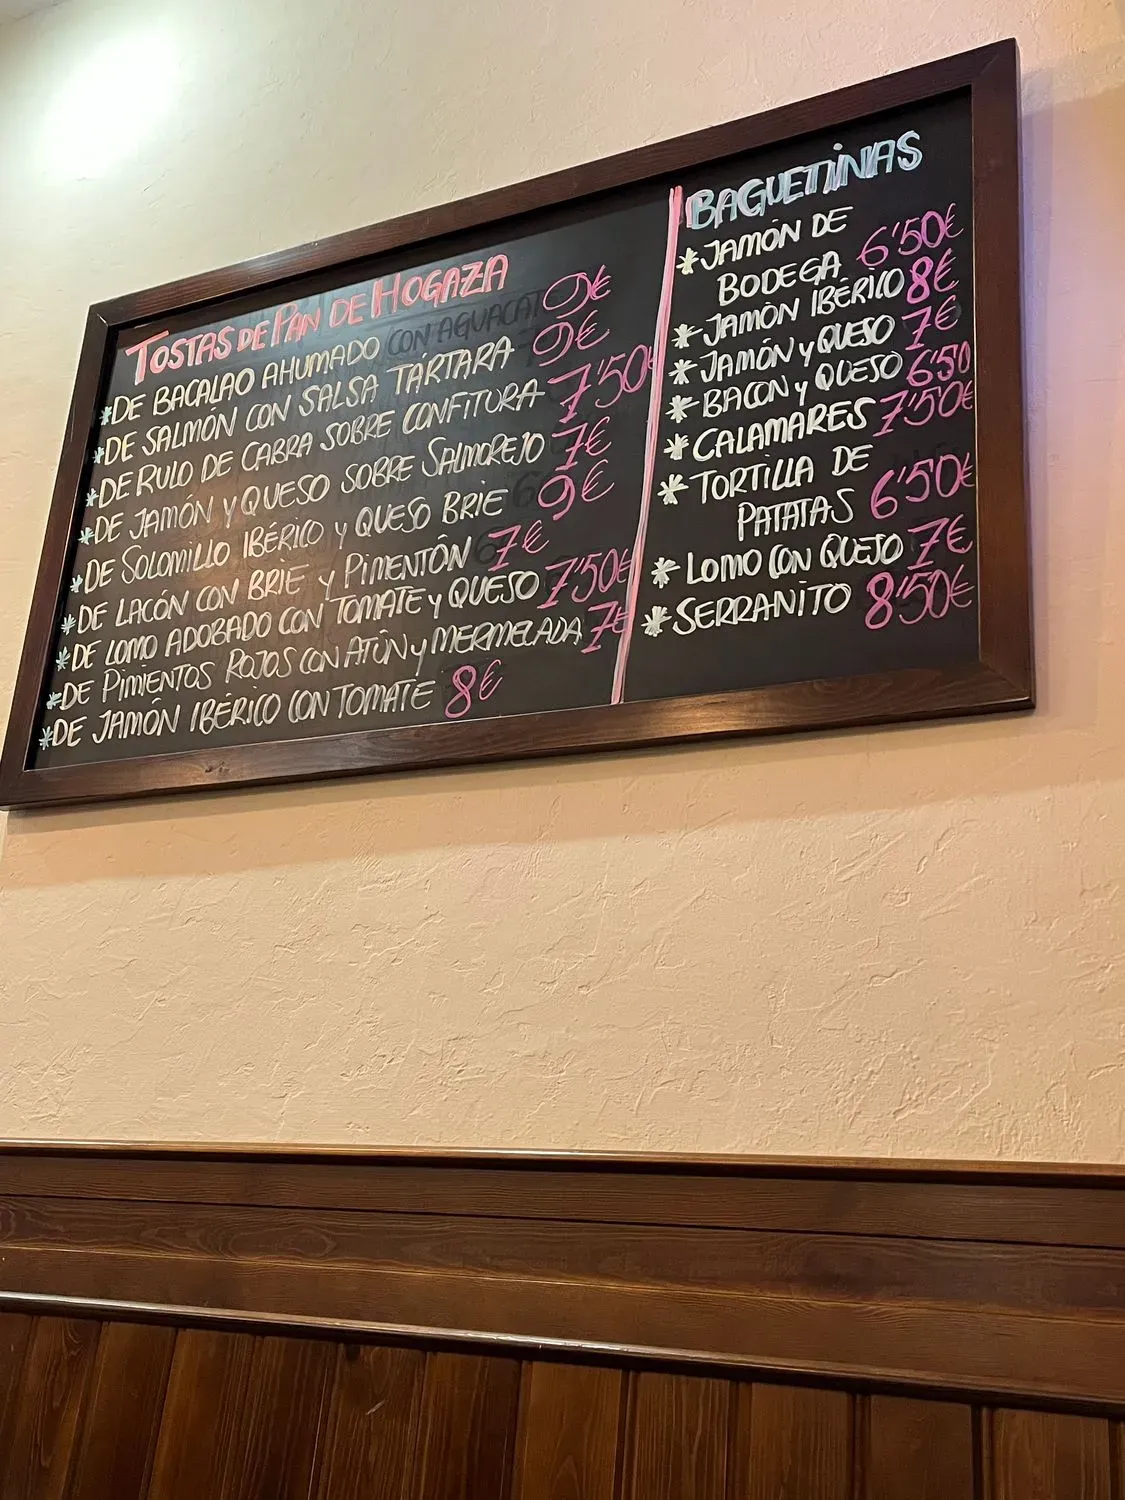 TOSTAS DE PAN DE HOGAZA
*DE BACALAO AHUMADO CON AGUACATE 9€
*DE SALMÓN CON SALSA TÁRTARA 9€
*DE RULO DE CABRA SOBRE CONFITURA 7'50€
*DE JAMÓN Y QUESO SOBRE SALMOREJO 7€
*DE SOLOMILLO IBÉRICO Y QUESO BRIE 9€
*DE LACÓN CON BRIE Y PIMENTÓN 7€
*DE LOMO ADOBADO CON TOMATE Y QUESO 7'50€
*DE PIMIENTOS ROJOS CON ATÚN Y MERMELADA 7€
*DE JAMÓN IBÉRICO CON TOMATE 8€
BAGUETINAS
*JAMÓN DE
BODEGA 6'50€
*JAMÓN IBÉRICO 8€
*JAMÓN Y QUESO 7€
*BACON Y QUESO 6'50
*CALAMARES 7'50€
*TORTILLA DE
PATATAS 6'50€
*LOMO CON QUESO 7€
*SERRANITO 8'50€